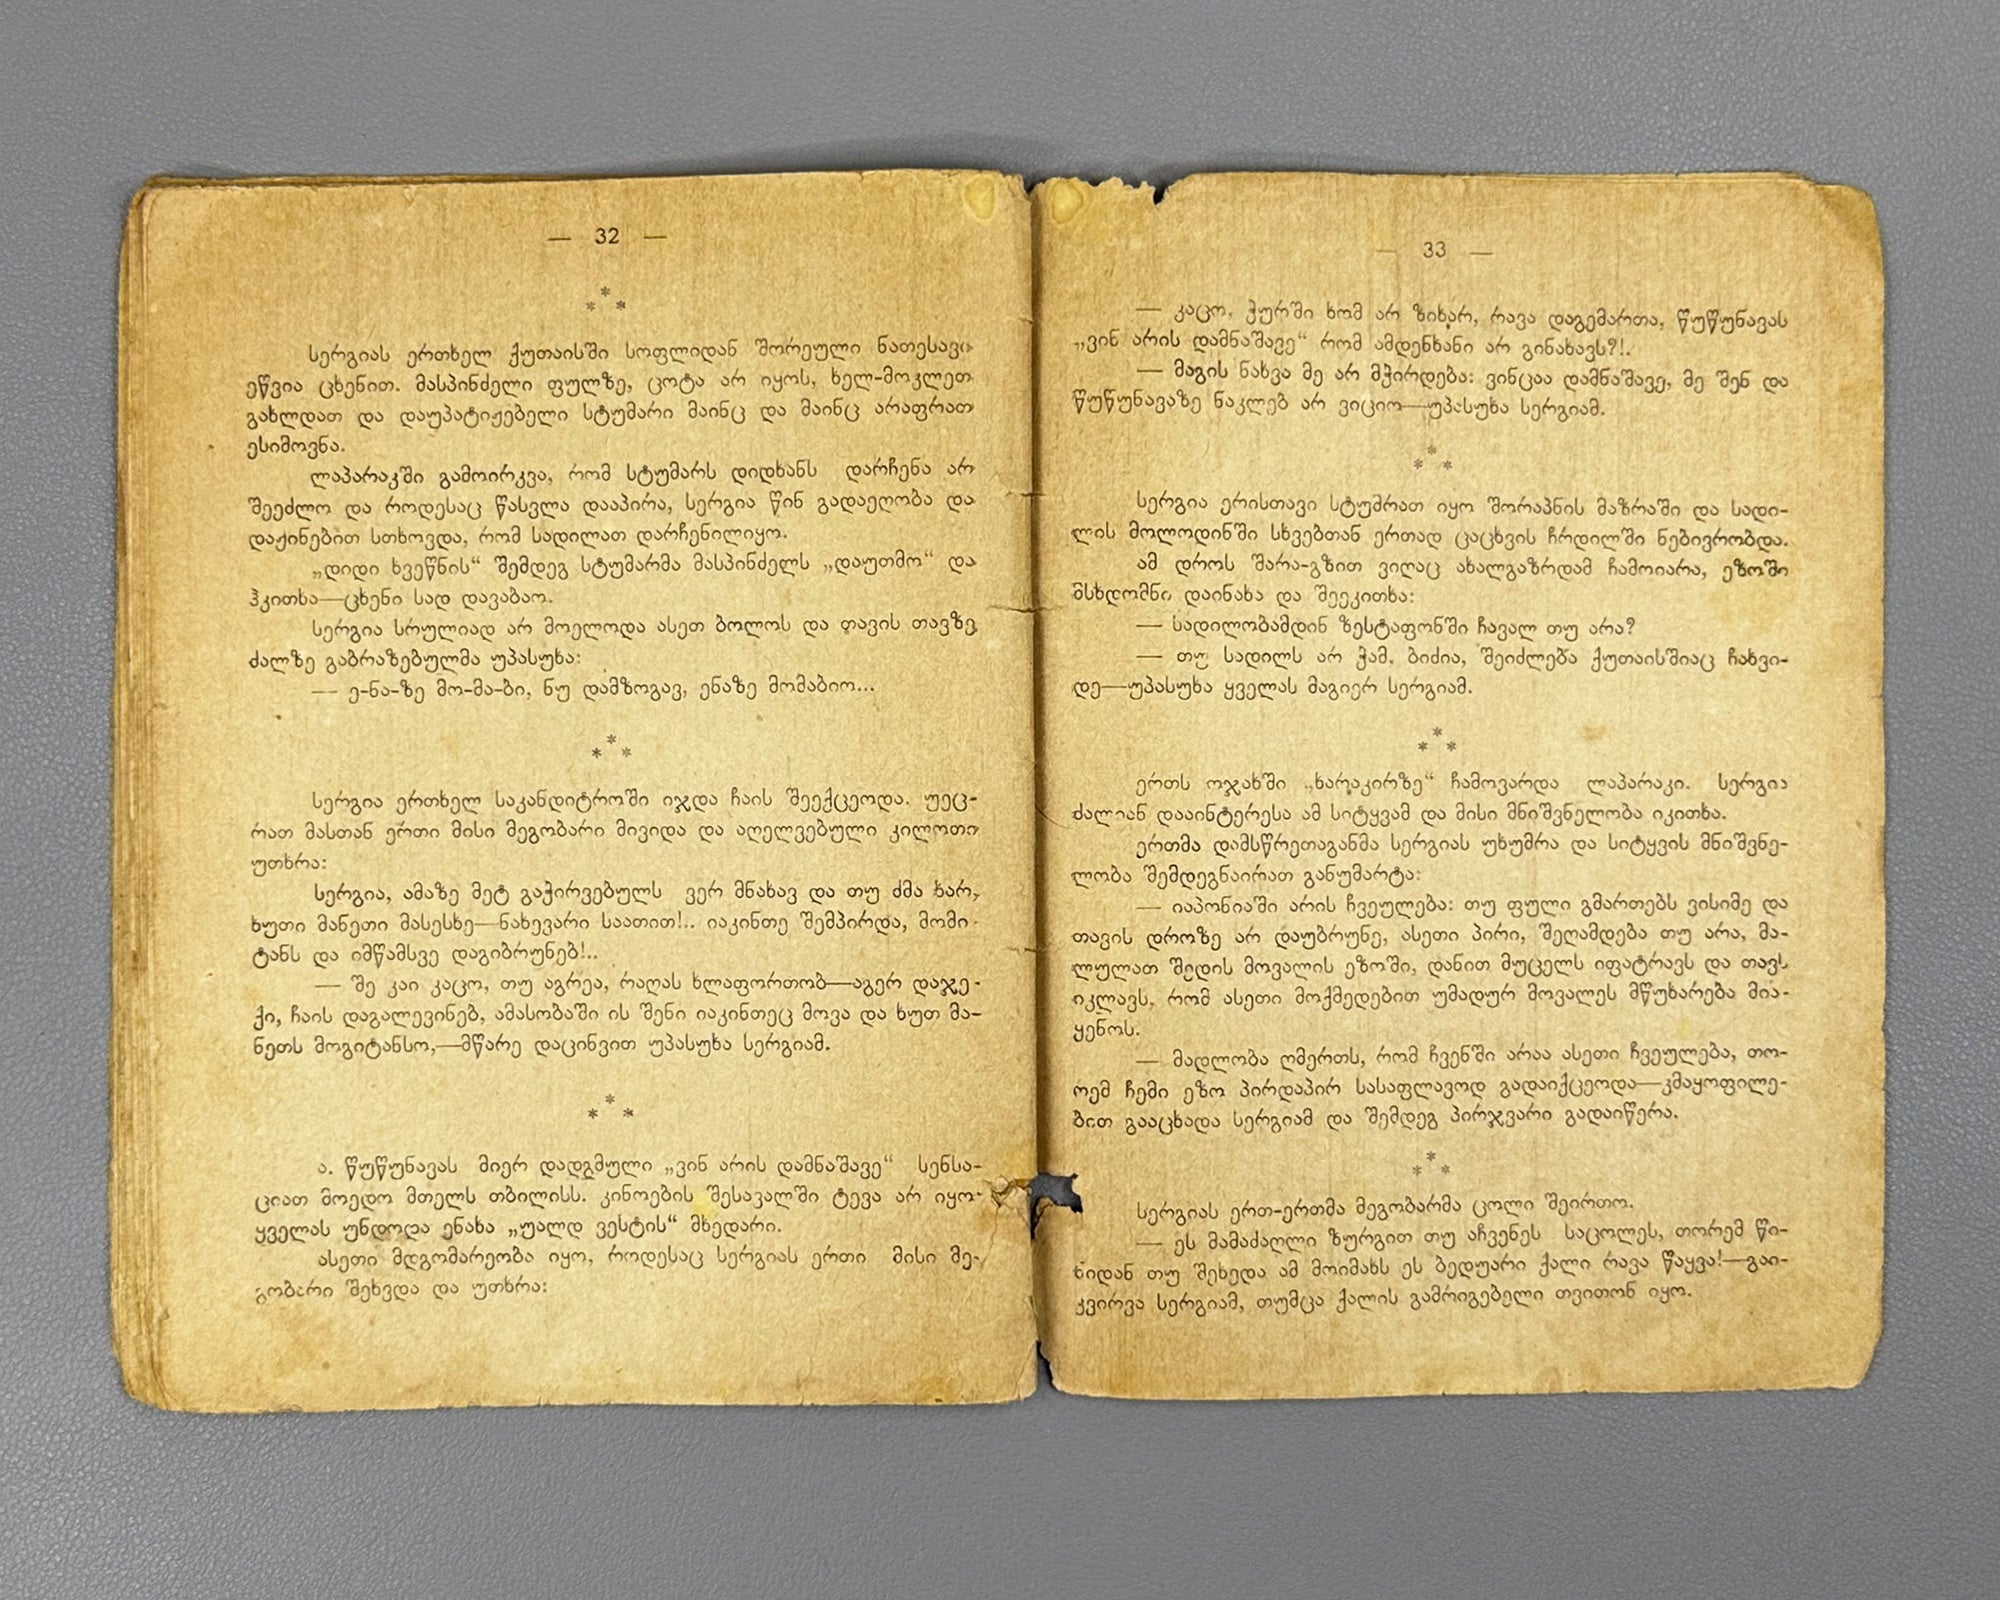 — 32 —
* * *
სერგიას ერთხელ ქუთაისში სოფლიდან შორეული ნათესავი
ეწვია ცხენით. მასპინძელი ფულზე, ცოტა არ იყოს, ხელ-მოკლეთ
გახლდათ და დაუპატიჟებელი სტუმარი მაინც და მაინც არაფრათ
ესიმოვნა.
ლაპარაკში გამოირკვა, რომ სტუმარს დიდხანს დარჩენა არ
შეეძლო და როდესაც წასვლა დააპირა, სერგია წინ გადაეღობა და
დაჟინებით სთხოვდა, რომ სადილათ დარჩენილიყო.
„დიდი ხვეწნის“ შემდეგ სტუმარმა მასპინძელს „დაუთმო“ და
ჰკითხა—ცხენი სად დავაბაო.
სერგია სრულიად არ მოელოდა ასეთ ბოლოს და თავის თავზე
ძალზე გაბრაზებულმა უპასუხა:
— ე-ნა-ზე მო-მა-ბი, ნუ დამზოგავ, ენაზე მომაბიო...
* * *
სერგია ერთხელ საკანდიტროში იჯდა ჩაის შეექცეოდა. უეც-
რათ მასთან ერთი მისი მეგობარი მივიდა და აღელვებული კილოთი
უთხრა:
სერგია, ამაზე მეტ გაჭირვებულს ვერ მნახავ და თუ ძმა ხარ,
ხუთი მანეთი მასესხე—ნახევარი საათით!.. იაკინთე შემპირდა, მომი-
ტანს და იმწამსვე დაგიბრუნებ!..
— შე კაი კაცო, თუ აგრეა, რაღას ხლაფორთობ—აგერ დაჯე-
ქი, ჩაის დაგალევინებ, ამასობაში ის შენი იაკინთეც მოვა და ხუთ მა-
ნეთს მოგიტანსო,—მწარე დაცინვით უპასუხა სერგიამ.
* * *
ა. წუწუნავას მიერ დადგმული „ვინ არის დამნაშავე“ სენსა-
ციათ მოედო მთელს თბილისს. კინოების შესავალში ტევა არ იყო-
ყველას უნდოდა ენახა „უალდ ვესტის“ მხედარი.
ასეთი მდგომარეობა იყო, როდესაც სერგიას ერთი მისი მე-
გობარი შეხვდა და უთხრა:
— 33 —
— კაცო, ჭურში ხომ არ ზიხარ, რავა დაგემართა, წუწუნავას
„ვინ არის დამნაშავე“ რომ ამდენხანი არ გინახავს?!.
— მაგის ნახვა მე არ მჭირდება: ვინცაა დამნაშავე, მე შენ და
წუწუნავაზე ნაკლებ არ ვიციო—უპასუხა სერგიამ.
* * *
სერგია ერისთავი სტუმრათ იყო შორაპნის მაზრაში და სადი-
ლის მოლოდინში სხვებთან ერთად ცაცხვის ჩრდილში ნებივრობდა.
ამ დროს შარა-გზით ვიღაც ახალგაზრდამ ჩამოიარა, ეზოში
მსხდომნი დაინახა და შეეკითხა:
— სადილობამდინ ზესტაფონში ჩავალ თუ არა?
— თუ სადილს არ ჭამ, ბიძია, შეიძლება ქუთაისშიაც ჩახვი-
დე—უპასუხა ყველას მაგიერ სერგიამ.
* * *
ერთს ოჯახში „ხარაკირზე“ ჩამოვარდა ლაპარაკი. სერგია
ძალიან დააინტერესა ამ სიტყვამ და მისი მნიშვნელობა იკითხა.
ერთმა დამსწრეთაგანმა სერგიას უხუმრა და სიტყვის მნიშვნე-
ლობა შემდეგნაირათ განუმარტა:
— იაპონიაში არის ჩვეულება: თუ ფული გმართებს ვისიმე და
თავის დროზე არ დაუბრუნე, ასეთი პირი, შეღამდება თუ არა, მა-
ლულათ შედის მოვალის ეზოში, დანით მუცელს იფატრავს და თავს
იკლავს, რომ ასეთი მოქმედებით უმადურ მოვალეს მწუხარება მია-
ყენოს.
— მადლობა ღმერთს, რომ ჩვენში არაა ასეთი ჩვეულება, თო-
რემ ჩემი ეზო პირდაპირ სასაფლავოდ გადაიქცეოდა—კმაყოფილე-
ბით გააცხადა სერგიამ და შემდეგ პირჯვარი გადაიწერა.
* * *
სერგიას ერთ-ერთმა მეგობარმა ცოლი შეირთო.
— ეს მამაძაღლი ზურგით თუ აჩვენეს საცოლეს, თორემ წი-
ნიდან თუ შეხედა ამ მოიმახს ეს ბედუარი ქალი რავა წაყვა!—გაი-
კვირვა სერგიამ, თუმცა ქალის გამრიგებელი თვითონ იყო.